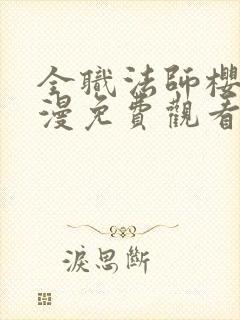 全職法師櫻
漫免費觀看
淚思斷